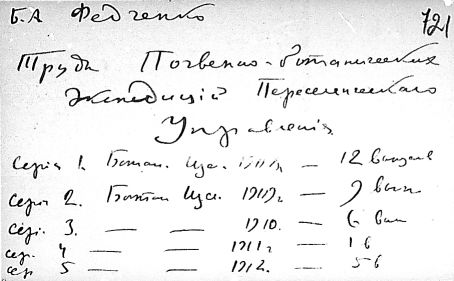 Б.А Федченко 721
Труды Почвенно-ботанических
экспедицій Переселенческаго
Управленія
Серія 1. Ботан. Изсл. — 12 выпусков
Серія 2. Ботан Изсл. 1909г. — 9 вып
Сері. 3. — — 1910. — 6 вып
сер. 4 — — 1911г — 1 в
сер 5 — — 1912. — 5 в